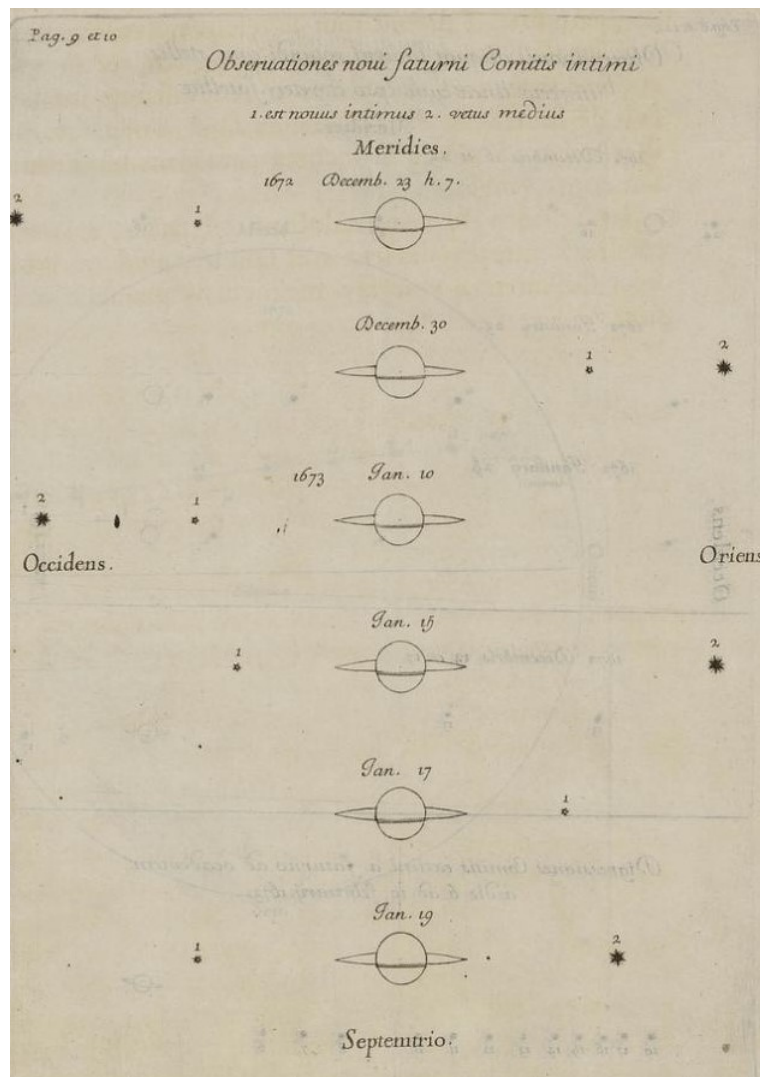 Pag. 9 et 10
Obseruationes noui saturni Comitis intimi
1. est nouus intimus 2. vetus medius
Meridies.
1672 Decemb. 23 h. 7.
2 1
Decemb. 30
1 2
1673 Jan. 10
2 1
Occidens. Oriens
Jan. 15
1 2
Jan. 17
1
Jan. 19
1 2
Septemtrio.